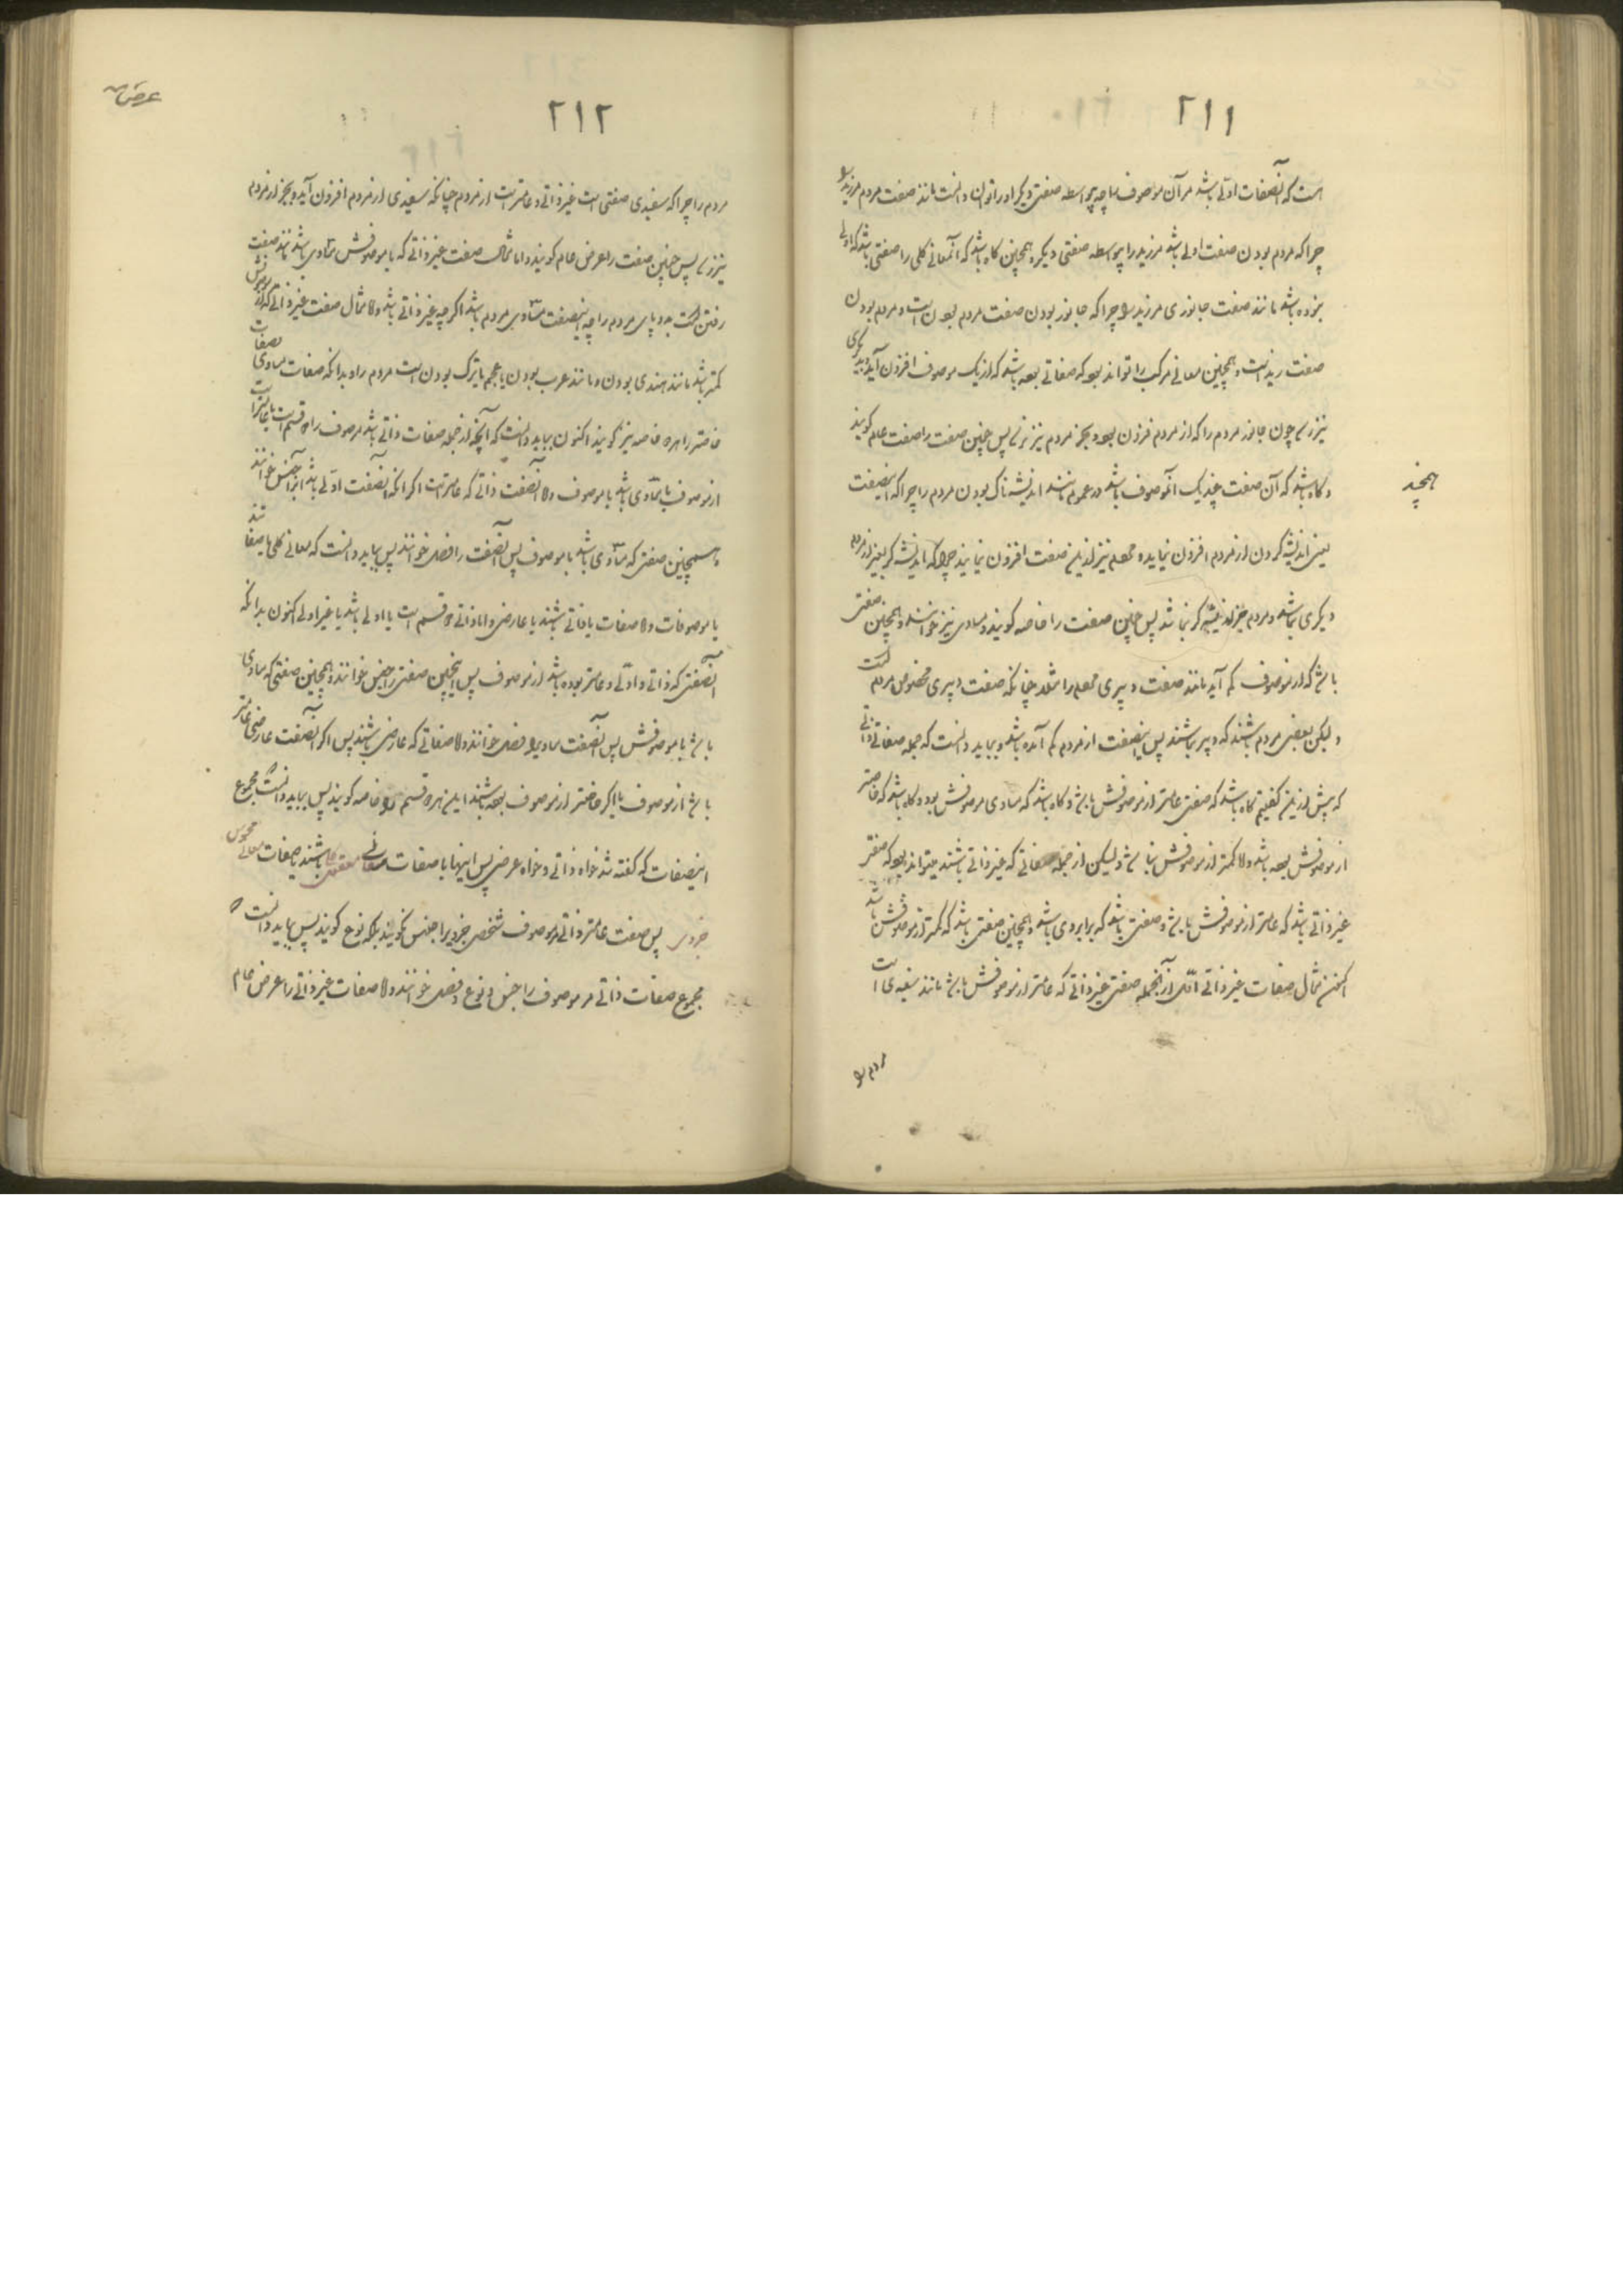 ٢١١
است که آنصفات اولی باشد مر آن موصوف را چه بیواسطه صفتی دیگر او را توان دانست مانند صفت مردم مر زید را
چرا که مردم بودن صفت اولی باشد مر زید را بیواسطه صفتی دیگر و همچنین گاه باشد که آنمعانی کلی را صفتی باشد که اولی
نبوده باشد مانند صفت جانوری مر زید را چرا که جانور بودن صفت مردم بودن است و مردم بودن
صفت زید است و همچنین معانی مرکب را تواند بود که صفاتی بوده باشد که از یک موصوف افزون آید و بدیگری
نیز رسد چون جانور مردم را که از مردم فزون بود و بجز مردم نیز رسد پس چنین صفت را صفت عام گویند
و گاه باشد که آن صفت چند یک آنموصوف باشد در عموم مانند اندیشه ناک بودن مردم را چرا که اینصفت
همچند
یعنی اندیشه کردن از مردم افزون نیاید و مردم نیز از این صفت افزون نیایند چرا که اندیشه گر بغیر از مردم
دیگری نباشد و مردم جز اندیشه گر نباشد پس چنین صفت را خاصه گویند و مساوی نیز خوانند و همچنین صفتی
باشد که از موصوف کم آید مانند صفت دبیری مردم را مثلا چنانکه صفت دبیری مخصوص مردم است
و لیکن بعضی مردم باشند که دبیر نباشند پس اینصفت از مردم کم آمده باشد و بباید دانست که جمله صفاتی ذاتی
که پیش از این گفتیم گاه باشد که صفتی عامتر از موصوفش باشد و گاه باشد که مساوی موصوفش بود و گاه باشد که خاصتر
از موصوفش بوده باشد و لا کمتر از موصوفش نباشد و لیکن از جمله صفاتی که غیر ذاتی باشند میتواند بود که صفتی
غیر ذاتی باشد که عامتر از موصوفش باشد و صفتی باشد که برابر وی باشد و همچنین صفتی باشد که کمتر از موصوفش باشد
اکنون مثال صفات غیر ذاتی اول از آنجمله صفتی غیر ذاتی که عامتر از موصوفش باشد مانند سفیدی است
مردم را
٢١٢
مردم را چرا که سفیدی صفتی است غیر ذاتی و عامتر است از مردم چنانکه سفیدی از مردم افزون آید و بجز از مردم
نیز رسد پس چنین صفت را عرض عام گویند و اما مثال صفت غیر ذاتی که با موصوفش مساوی باشد مانند صفت
رفتن است بدو پای مردم را چه اینصفت مساوی مردم باشد اگر چه غیر ذاتی باشد و لا مثال صفت غیر ذاتی که از موصوفش
کمتر باشد مانند هندی بودن و مانند عرب بودن یا عجم یا ترک بودن است مردم را و بدانکه صفات مساوی و صفات
خاصتر را هر دو خاصه نیز گویند اکنون بباید دانست که آنچه از جمله صفات ذاتی باشد مر موصوف را دو قسم است یا عامتر است
از موصوف یا مساوی باشد با موصوف و لا آنصفت ذاتی که عامتر است اگر آنکه آنصفت اولی باشد آنرا جنس خوانند
و همچنین صفتی که مساوی باشد با موصوف پس آنصفت را فصل خوانند پس بباید دانست که معانی کلی یا صفاتند
یا موصوفات و لا صفات یا ذاتی باشند یا عارضی و اما ذاتی دو قسم است یا اولی باشد یا غیر اولی اکنون بدانکه
آنصفتی که ذاتی و اولی و عامتر بوده باشد از موصوف پس اینچنین صفتی را جنس خوانند و همچنین صفتی که مساوی
باشد با موصوفش پس آنصفت مساوی را فصل خوانند و لا صفاتی که عارضی باشند پس اگر آنصفت عارضی عامتر
باشد از موصوف یا اگر خاصتر از موصوف بوده باشند این هر دو قسم را خاصه گویند پس بباید دانست که مجموع
اینصفات که گفته شد خواه ذاتی و خواه عرضی پس اینها یا صفات معانی معقول باشند یا صفات معانی محسوس
جزوی پس صفت عامتر ذاتی مر موصوف شخصی جزویرا جنس نگویند بلکه نوع گویند پس بباید دانست که
مجموع صفات ذاتی مر موصوف را جنس و نوع و فصل خوانند و لا صفات غیر ذاتی را عرض عام